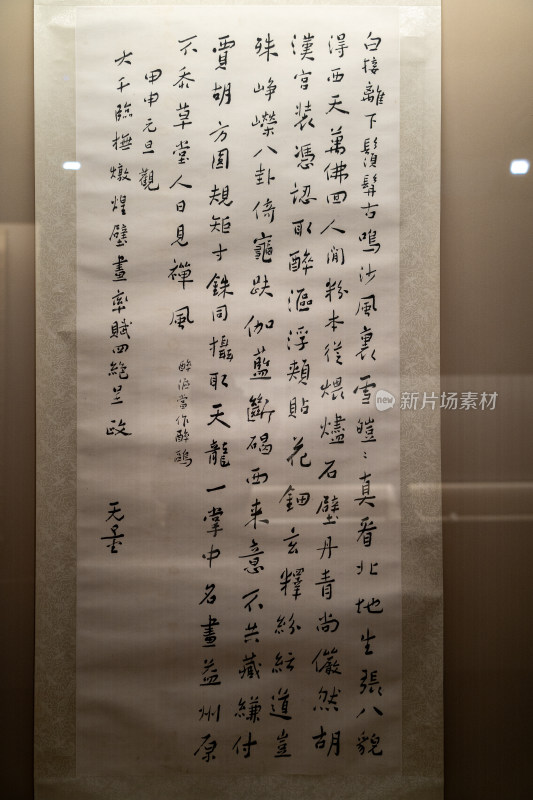 白接離下鬚髯古鳴沙風裏雪皚〻真看北地生張八貌
得西天萬佛回人間粉本從煨燼石壁丹青尚儼然胡
漢宮裝憑認取醉漚浮頰貼花鈿玄釋紛紜道豈
殊崢嶸八卦倚龜趺伽藍斷碣西来意不共藏縑付
賈胡方圓規矩寸銖同攝取天龍一掌中名畫益州原
不忝草堂人日見禪風
醉漚當作醉鷗
甲申元旦觀
大千臨撫燉煌壁畫率賦四絕呈政 无量
新片场素材